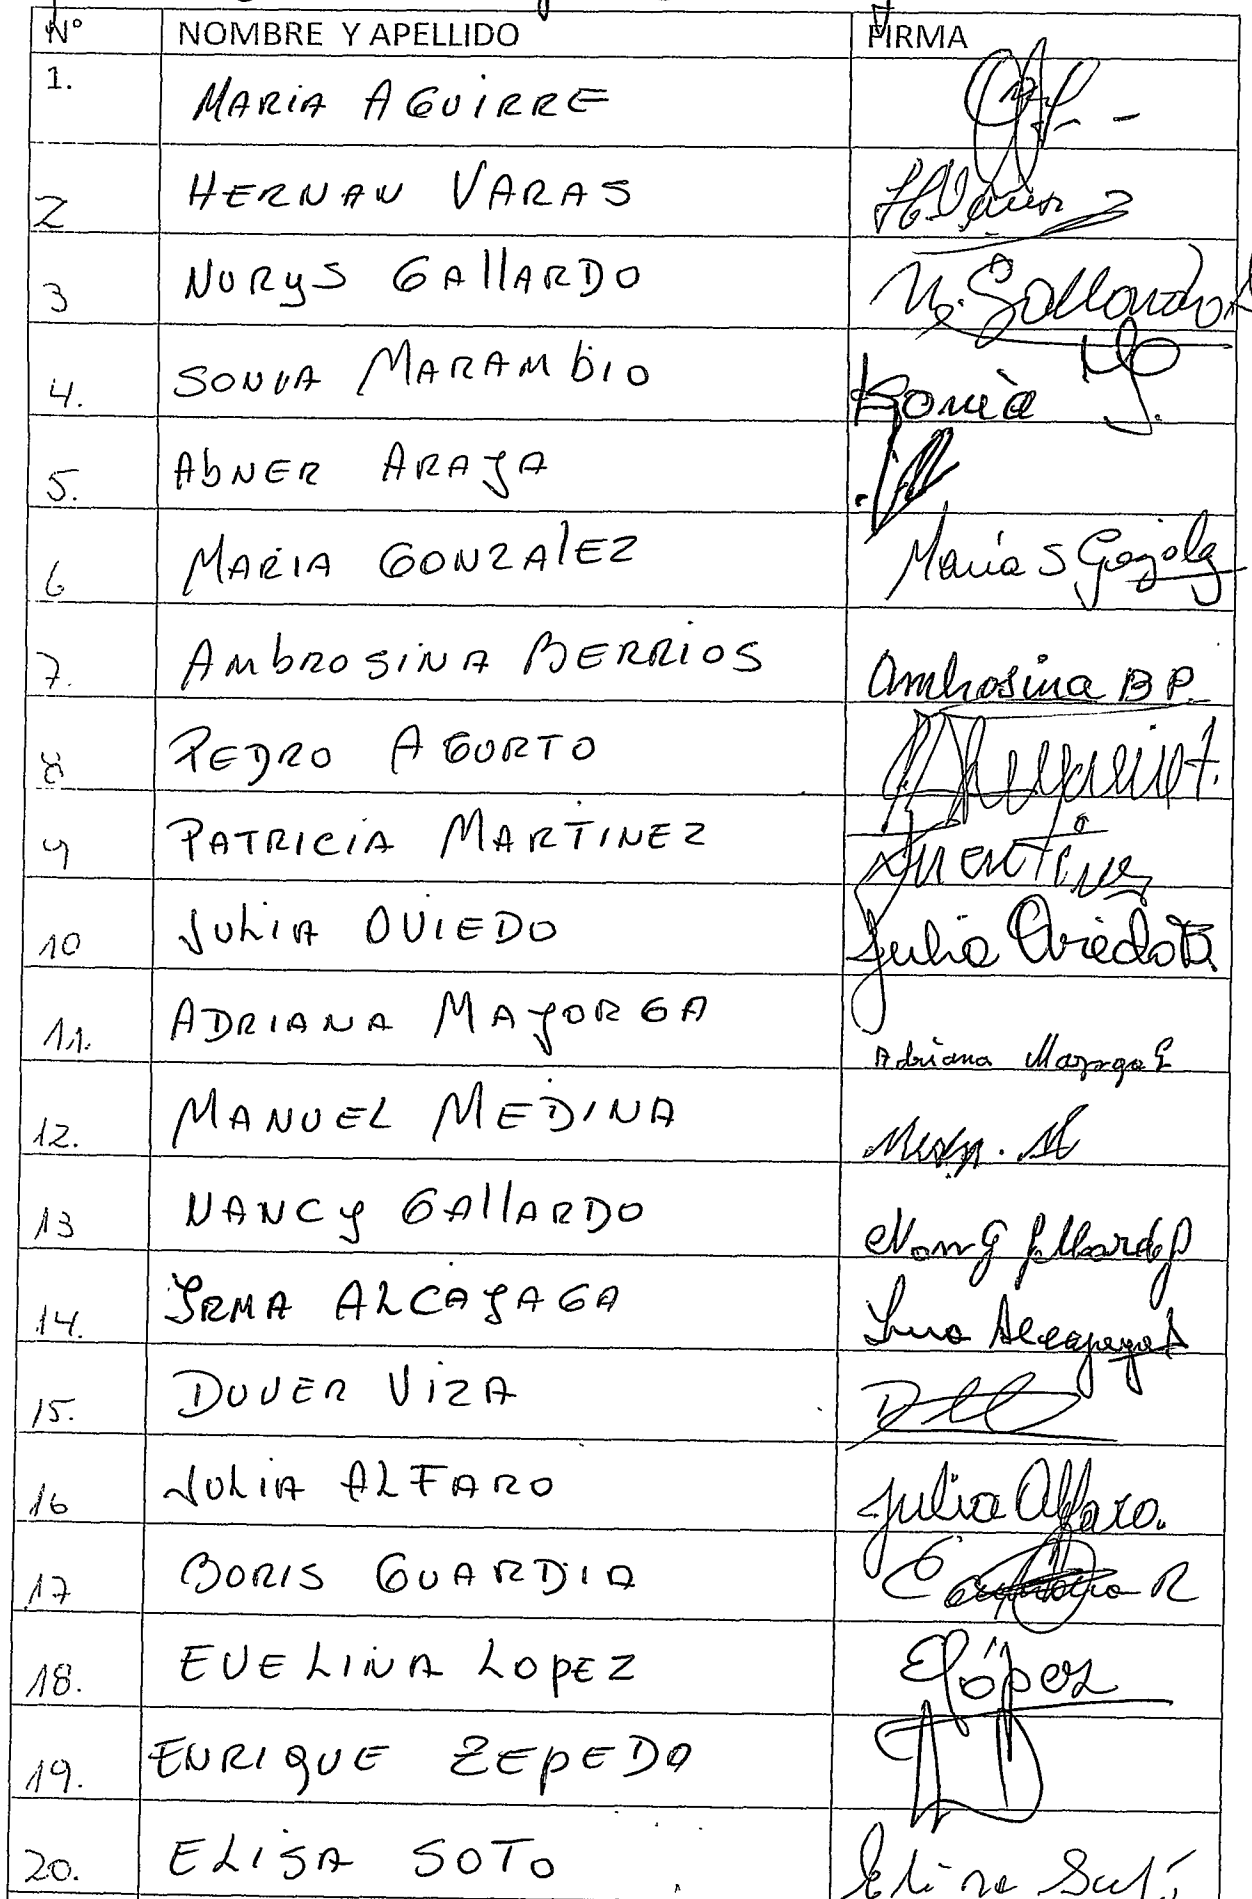 N° NOMBRE Y APELLIDO FIRMA
1. MARIA AGUIRRE
2 HERNAN VARAS
3 NURYS GALLARDO N. Gallardo
4. SONIA MARAMBIO Sonia
5. ABNER ARAYA
6 MARIA GONZALEZ Maria S
7. AMBROSINA BERRIOS Ambrosina B P.
8 PEDRO AGURTO
9 PATRICIA MARTINEZ Martinez
10 JULIA OVIEDO Julia Oviedo
11. ADRIANA MAYORGA Adriana
12. MANUEL MEDINA
13 NANCY GALLARDO
14. IRMA ALCAYAGA
15. DUVER VIZA
16 JULIA ALFARO Julia Alfaro.
17 BORIS GUARDIA
18. EVELINA LOPEZ E López
19. ENRIQUE ZEPEDA
20. ELISA SOTO